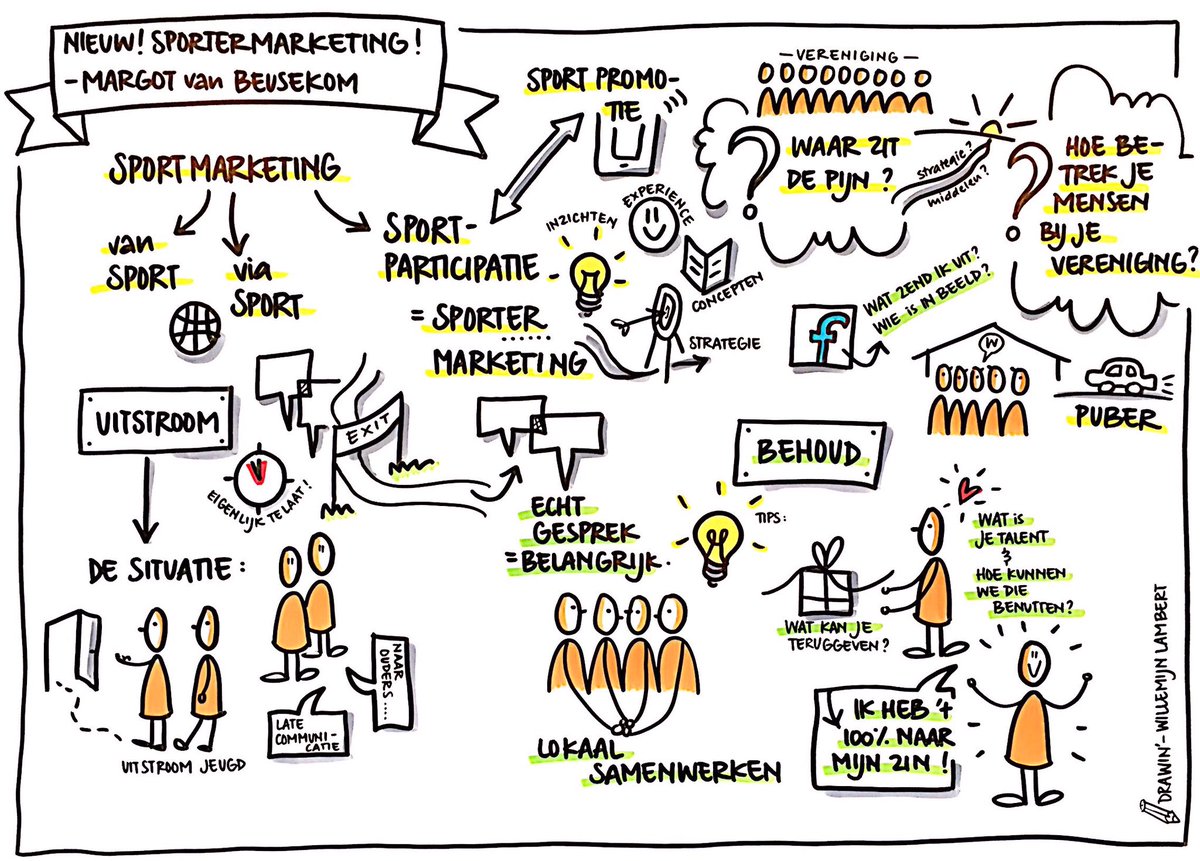 NIEUW! SPORTERMARKETING!
- MARGOT van BEUSEKOM
SPORT MARKETING
van
SPORT
via
SPORT
SPORT-
PARTICIPATIE
= SPORTER
MARKETING
SPORT PROMO-
TIE
INZICHTEN
EXPERIENCE
CONCEPTEN
STRATEGIE
- VERENIGING -
? WAAR ZIT
DE PIJN?
strategie?
middelen?
? HOE BE-
TREK JE
MENSEN
BIJ JE
VERENIGING?
f
WAT ZEND IK UIT?
WIE is IN BEELD?
W
PUBER
UITSTROOM
EIGENLIJK TE LAAT!
EXIT
DE SITUATIE:
UITSTROOM JEUGD
LATE
COMMUNI-
CATIE
NAAR
OUDERS....
ECHT
GESPREK
= BELANGRIJK.
LOKAAL
SAMENWERKEN
BEHOUD
TIPS:
WAT KAN JE
TERUGGEVEN?
WAT is
JE TALENT
&
HOE KUNNEN
WE DIE
BENUTTEN?
IK HEB 't
100% NAAR
MIJN ZIN!
DRAWIN' - WILLEMIJN LAMBERT